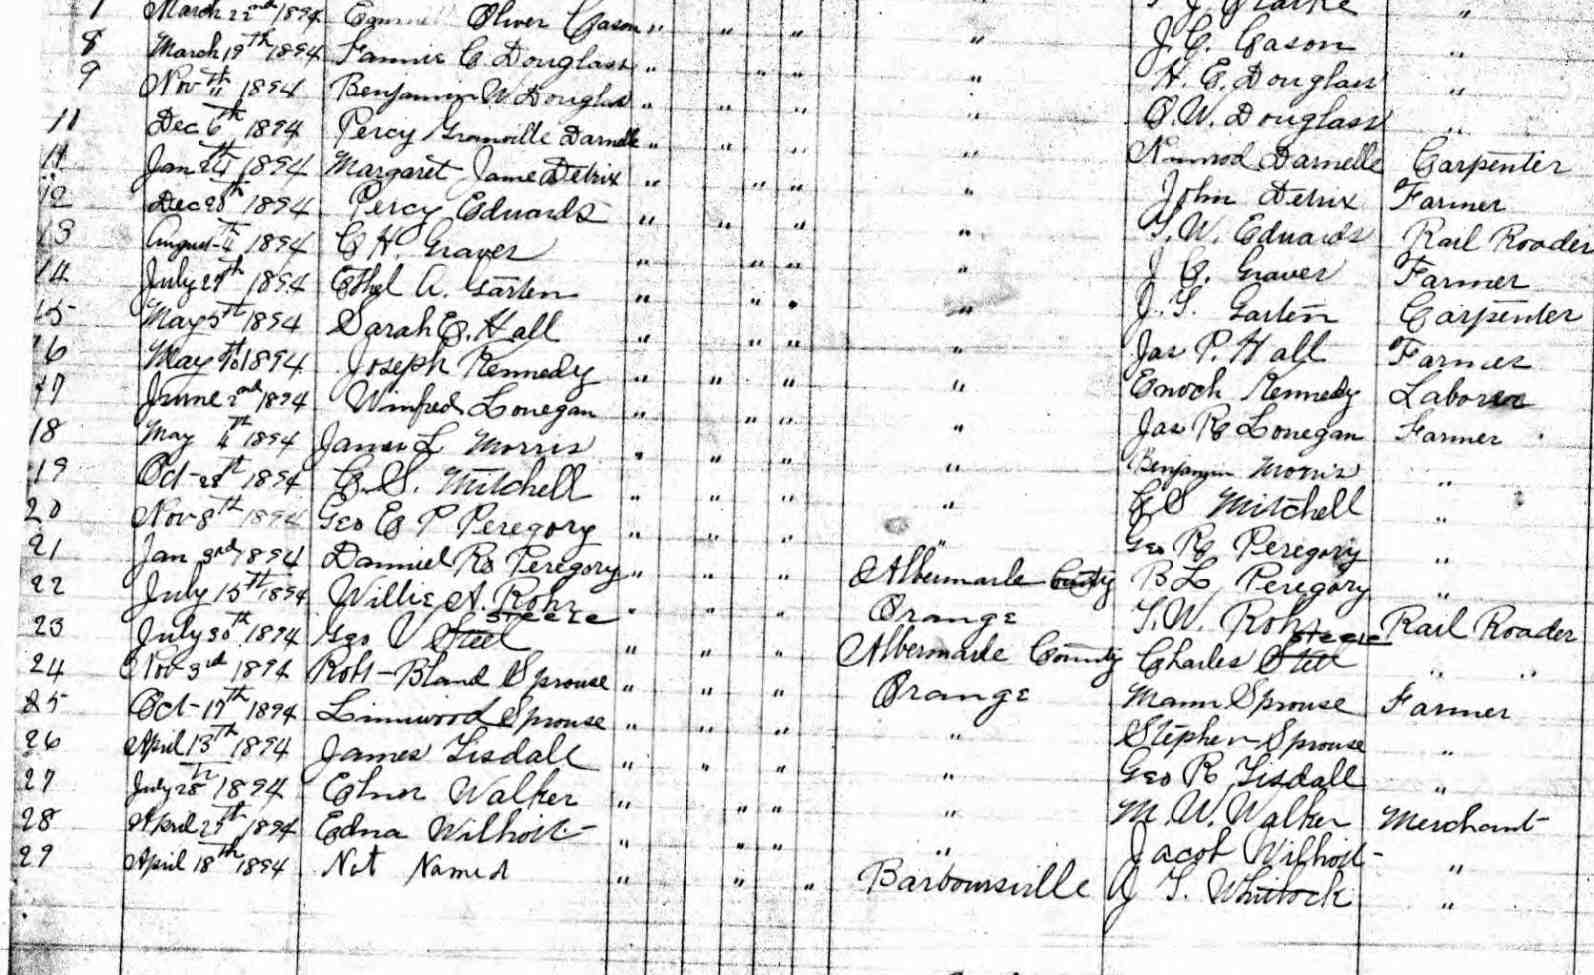 March 22nd 1894 Oliver Eason " " " " J. Clarke "
8 March 19th 1894 Fannie C Douglass " " " " J. C. Eason "
9 Nov th 1894 Benjamin W Douglas " " " " H. E. Douglass "
11 Dec 6th 1894 Percy Granville Darnelle " " " " O. W. Douglass "
11 Jan 1894 Margaret Jane Detrix " " " " Nimrod Darnelle Carpenter
12 Dec 20th 1894 Percy Edwards " " " " John Detrix Farmer
13 August 1894 C H. Graver " " " " T. W. Edwards Rail Roader
14 July 29th 1894 Ethel A. Garten " " " " J C. Graver Farmer
15 May 5th 1894 Sarah E. Hall " " " " J. T. Garten Carpenter
16 May 1894 Joseph Kennedy " " " " Jas P. Hall Farmer
17 June 2nd 1894 Winfred Lonegan " " " " Enoch Kennedy Laborer
18 May 1894 James L Morris " " " " Jas R Lonegan Farmer
19 Oct 28th 1894 C. S. Mitchell " " " " Benjamin Morris "
20 Nov 8th 1894 Geo E P Peregory " " " " C S Mitchell "
21 Jan 3rd 1894 Danniel R Peregory " " " " Geo R Peregory "
22 July 15th 1894 Willie A. Rohr " " " Albermarle County B L Peregory "
23 July 30th 1894 Geo V Steel Steele " " " Orange T. W. Rohr Rail Roader
24 Nov 3rd 1894 Robt Bland Sprouse " " " Albermarle County Charles Steel Steele " "
25 Oct 17th 1894 Linnwood Sprouse " " " Orange Mann Sprouse Farmer
26 April 13th 1894 James Tisdall " " " " Stephen Sprouse "
27 July 28th 1894 Elmer Walker " " " " Geo R Tisdall "
28 April 25th 1894 Edna Wilhoit " " " " M. W. Walker Merchant
29 April 18th 1894 Not Named " " " Barboursville Jacob Wilhoit "
J T. Whitlock "